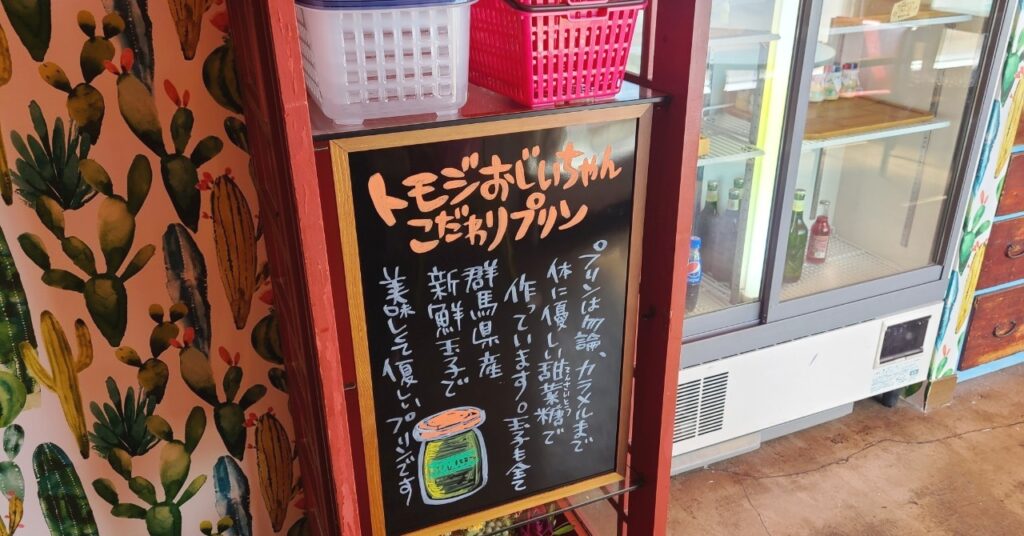 トモジおじいちゃん
こだわりプリン
プリンは勿論、カラメルまで
体に優しい甜菜糖で
てんさいとう
作っています。玉子も全て
群馬県産
新鮮玉子で
美味しくて優しいプリンです